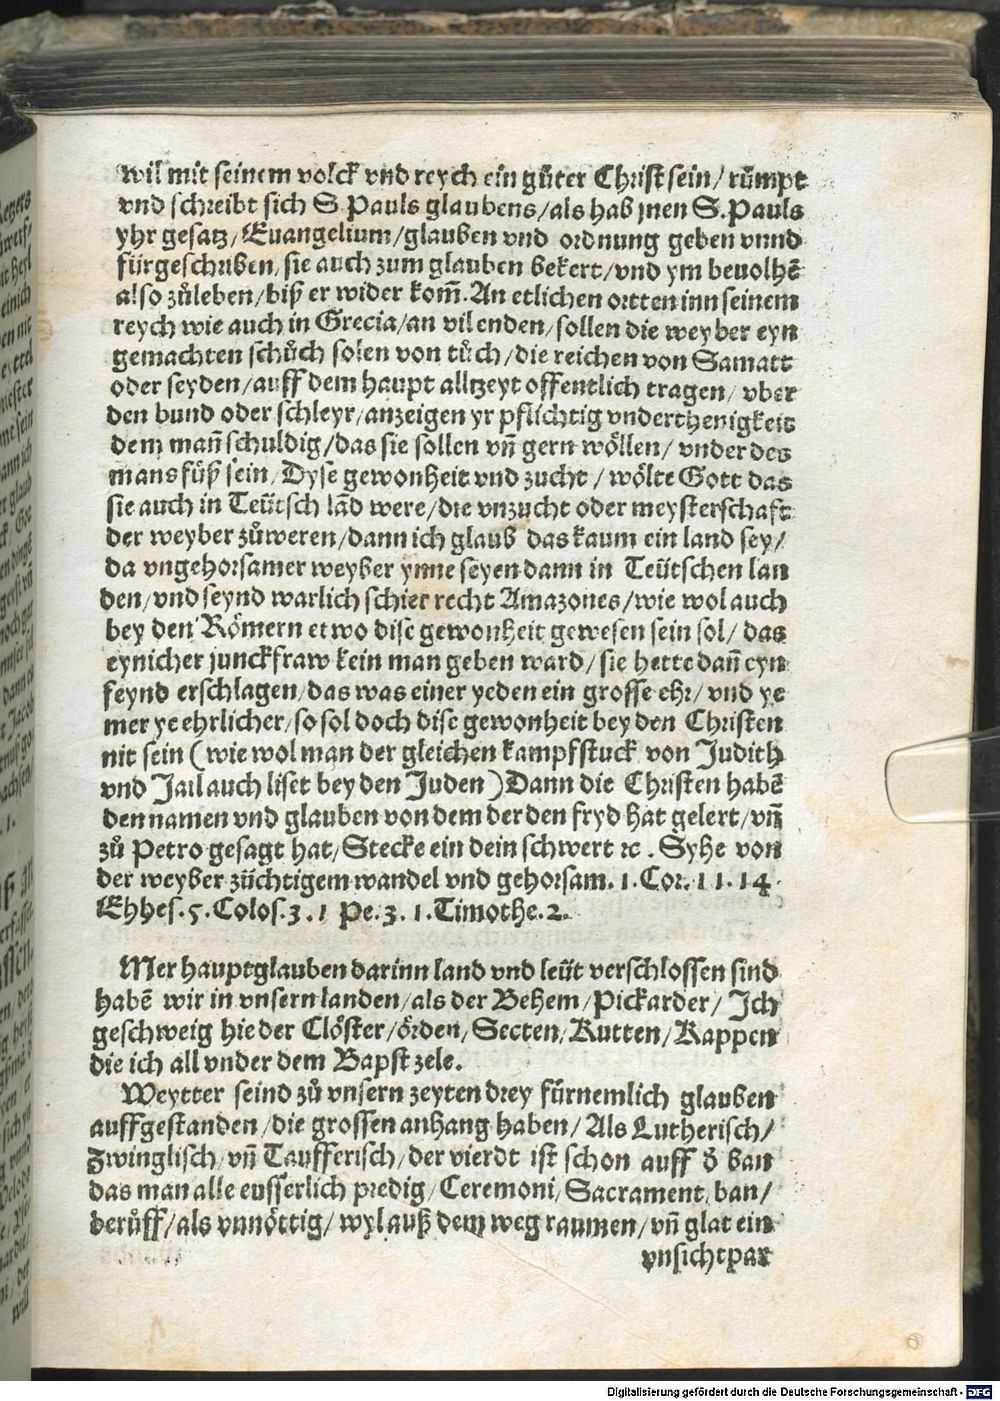 wil mit seinem volck vnd reych ein gůter Christ sein/ růmpt
vnd schreibt sich S. Pauls glaubens/als hab jnen S. Pauls
yhr gesatz/Euangelium/glauben vnd ordnung geben vnnd
fürgeschriben/sie auch zum glauben bekert/vnd ym beuolhẽ
also zůleben/biß er wider kom̃. An etlichen ortten inn seinem
reych wie auch in Grecia/an vil enden/sollen die weyber eyn
gemachten schůch solen von tůch/die reichen von Samatt
oder seyden/auff dem haupt alltzeyt offentlich tragen/ vber
den bund oder schleyr/anzeigen yr pflichtig vnderthenigkeit
dem mañ schuldig/das sie sollen vñ gern wöllen/ vnder des
mans fůß sein/Dyse gewonheit vnd zucht / wölte Gott das
sie auch in Teütsch lãd were/die vnzucht oder meysterschaft
der weyber zůweren/dann ich glaub das kaum ein land sey/
da vngehorsamer weyber ynne seyen dann in Teütschen lan
den/vnd seynd warlich schier recht Amazones/wie wol auch
bey den Römern etwo dise gewonheit gewesen sein sol/ das
eynicher junckfraw kein man geben ward/sie hette dañ eyn
feynd erschlagen/das was einer yeden ein grosse ehr/ vnd ye
mer ye ehrlicher/so sol doch dise gewonheit bey den Christen
nit sein (wie wol man der gleichen kampfstuck von Judith
vnd Jail auch liset bey den Juden) Dann die Christen habẽ
den namen vnd glauben von dem der den fryd hat gelert/vñ
zů Petro gesagt hat/Stecke ein dein schwert ꝛc. Syhe von
der weyber züchtigem wandel vnd gehorsam. 1. Cor. 11. 14.
Ehhes. 5. Colos. 3. 1 Pe. 3. 1. Timothe. 2.
Mer hauptglauben darinn land vnd leüt verschlossen sind
habẽ wir in vnsern landen/als der Behem/Pickarder/ Ich
geschweig hie der Clöster/örden/Secten/Kutten/Kappen
die ich all vnder dem Bapst zele.
Weytter seind zů vnsern zeyten drey fürnemlich glauben
auffgestanden/die grossen anhang haben/ Als Lutherisch/
Zwinglisch/vñ Taufferisch/der vierdt ist schon auff ď ban
das man alle eusserlich predig/Ceremoni/Sacrament, ban/
berůff/als vnnöttig/wyl auß dem weg raumen/vñ glat ein
vnsichtpar
Digitalisierung gefördert durch die Deutsche Forschungsgemeinschaft - DFG